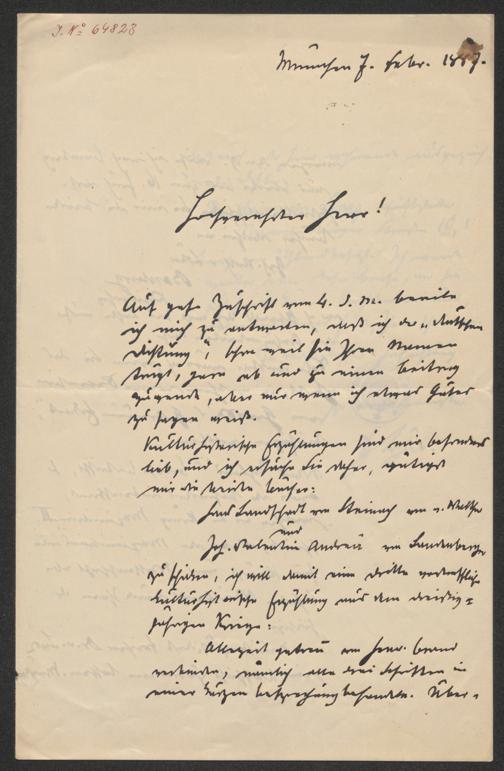 J. No 64823
München 7. Febr. 1887.
Hochgeehrter Herr!
Auf gef. Zuschrift vom 4. d. M. beeile
ich mich zu antworten, daß ich der „deutschen
Dichtung“, schon weil sie Ihren Namen
trägt, gern ab und zu einen Beitrag
zuwende, aber nur wenn ich etwas Gutes
zu sagen weiß.
Kulturhistorische Erzählungen sind mir besonders
lieb, und ich ersuche Sie daher, gütigst
mir die beiden Bücher:
Hans Landschad von Steinach von A.
und
Joh. Valentin Andreä von Landenberger
zu schicken, ich will damit eine dritte vortreffliche
kulturhistorische Erzählung aus dem dreißig=
jährigen Kriege:
Allezeit getreu von Herr.
verbinden, nämlich alle drei Schriften in
einer kurzen Besprechung behandeln. Über=